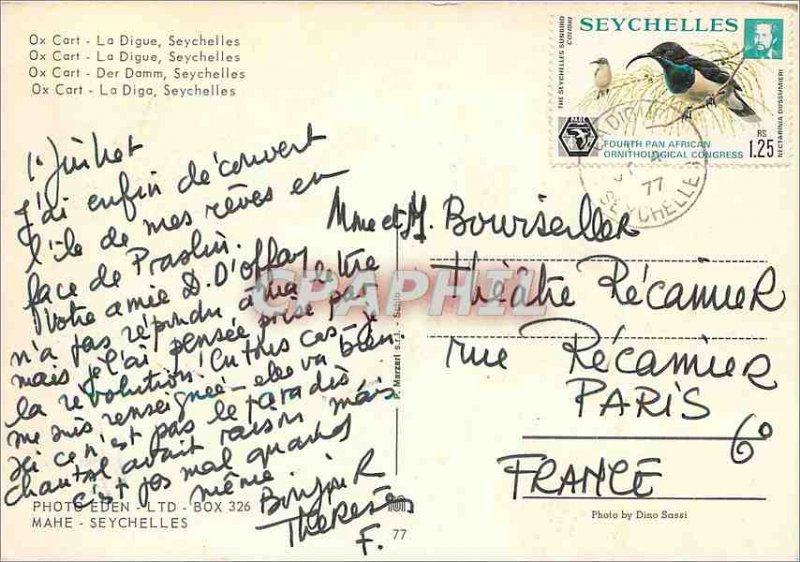 Ox Cart - La Digue, Seychelles
Ox Cart - La Digue, Seychelles
Ox Cart - Der Damm, Seychelles
Ox Cart - La Diga, Seychelles
1er Juillet
J'ai enfin découvert
l'île de mes rêves en
face de Praslin.
Votre amie D. D'offay
n'a pas répondu à ma lettre
mais je l'ai pensée prise par
la révolution! En tous cas je
me suis renseignée - elle va bien.
Ici ce n'est pas le paradis
Chantal avait raison mais
c'est pas mal quand
même.
Bonjour
Thérèse
F.
PHOTO EDEN - LTD - BOX 326
MAHE - SEYCHELLES
77
P. Marzari s.r.l. - Schio
CPAPHIL
SEYCHELLES
THE SEYCHELLES SUNBIRD
COLIBRI
NECTARINIA DUSSUMIERI
PAOC
FOURTH PAN AFRICAN
ORNITHOLOGICAL CONGRESS
RS
1.25
LA DIGUE
77
SEYCHELLES
Mme et M. Bourseiller
Théâtre Récamier
rue Récamier
PARIS 6°
FRANCE
Photo by Dino Sassi